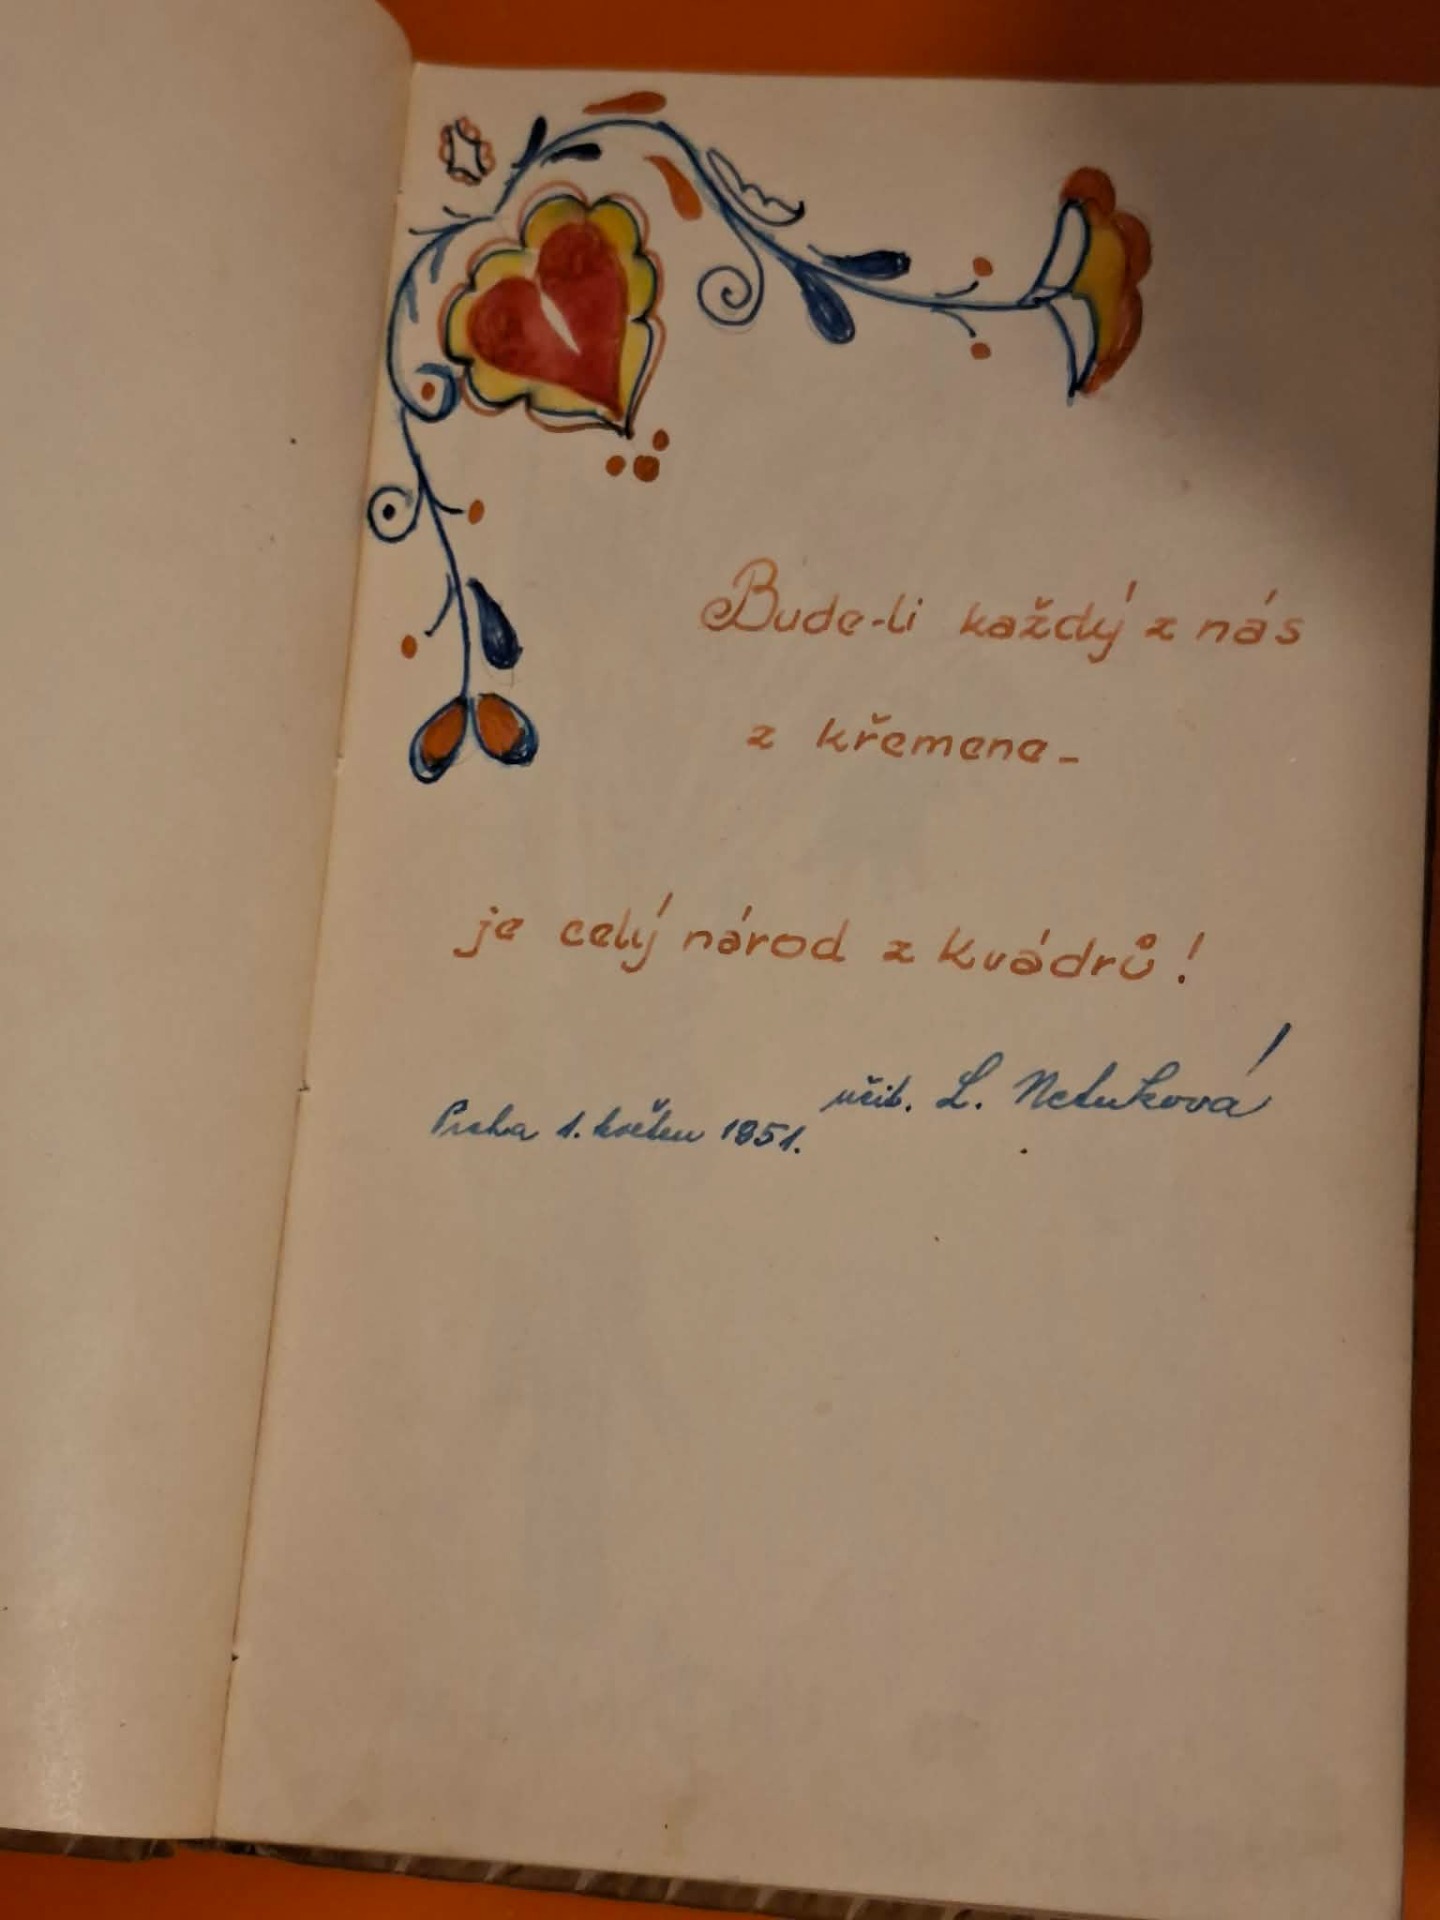 Bude-li každý z nás
z křemene -
je celý národ z kvádrů!
učit. L. Netuková
Praha 1. květen 1951.